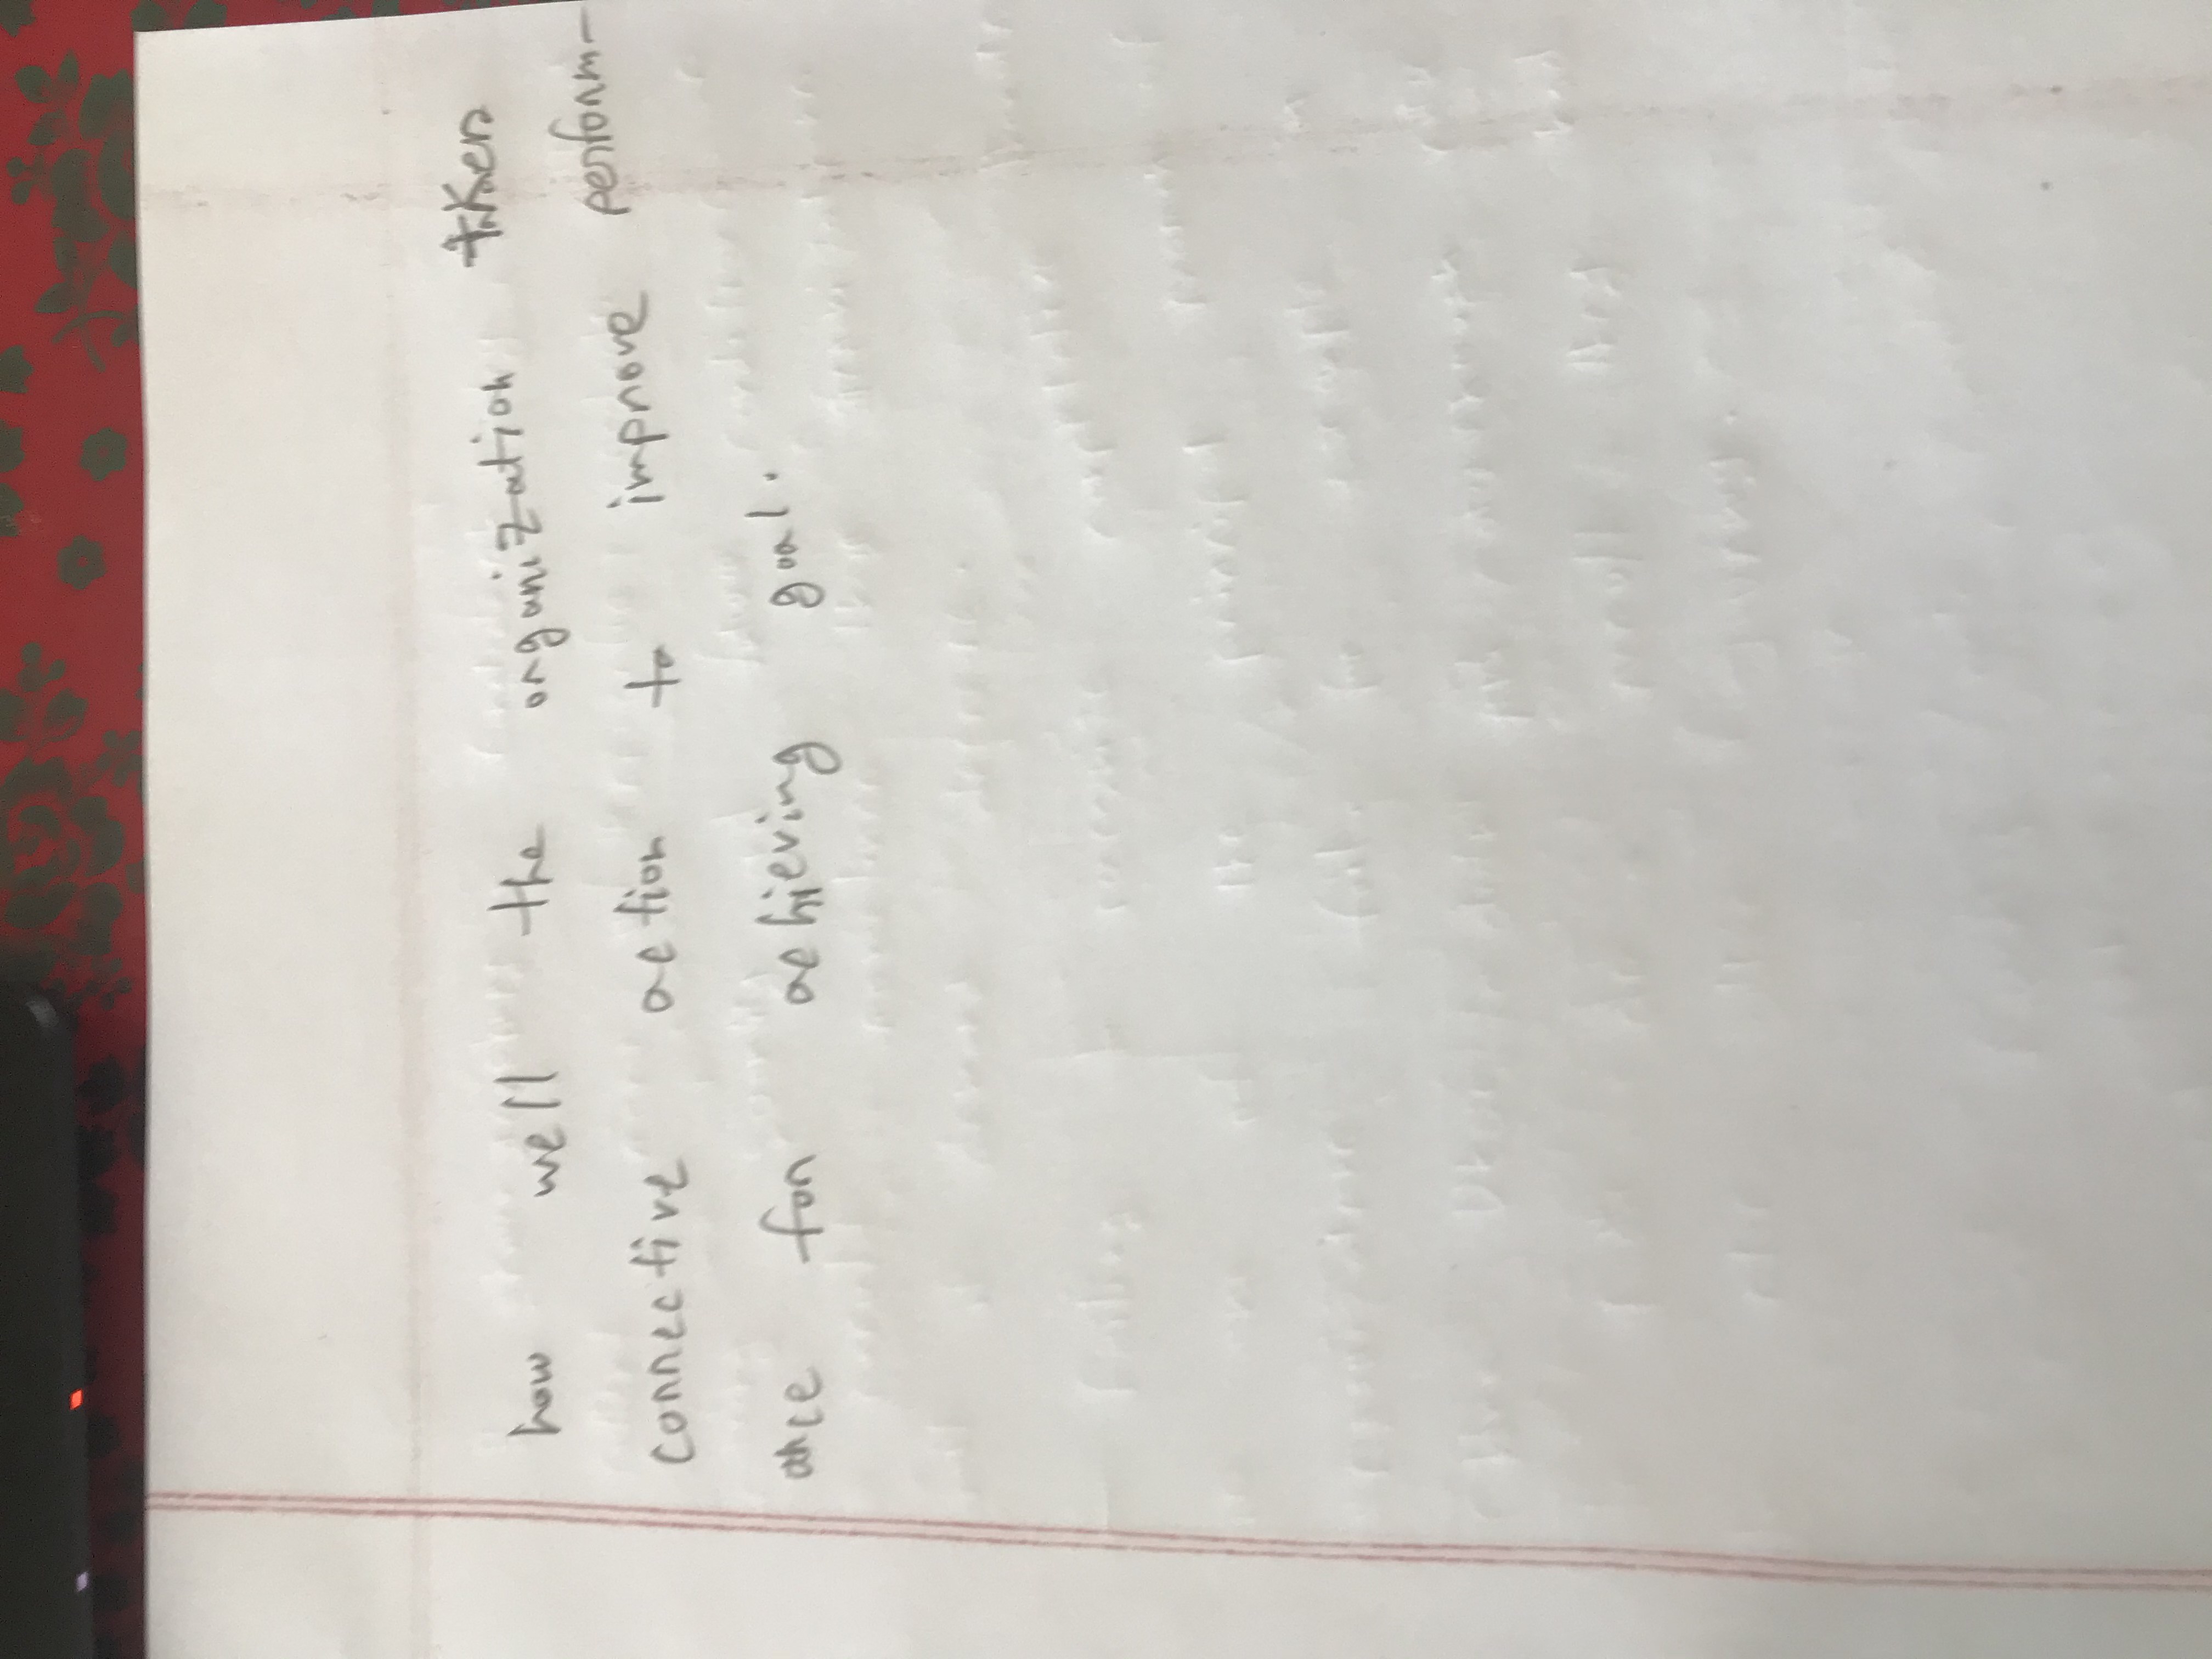 how well the organization taken
corrective action to improve perform-
ance for achieving goal.